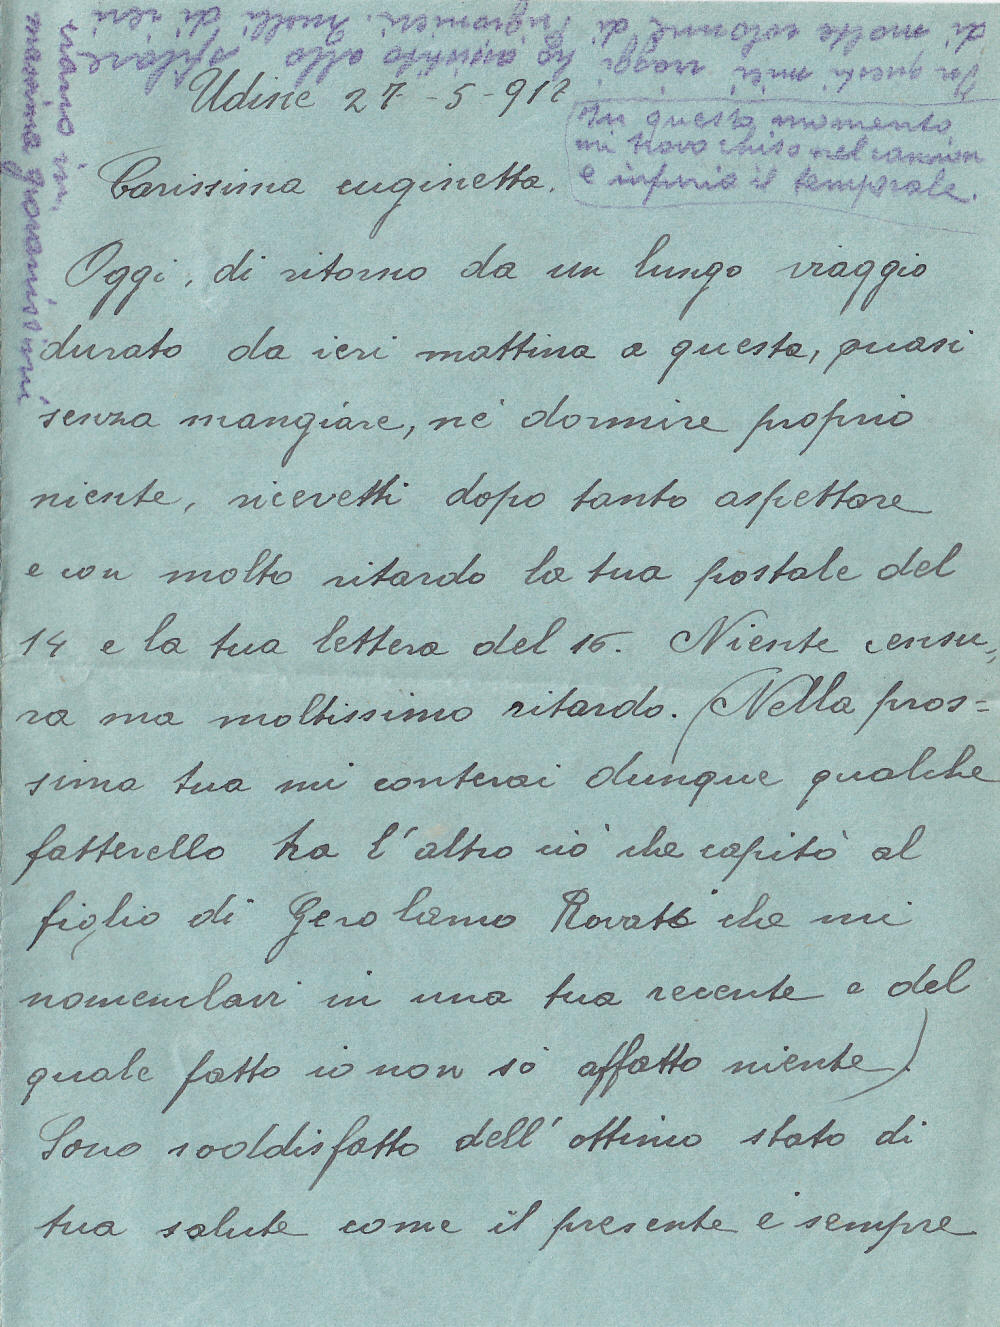 Udine 27-5-917
Carissima cuginetta.
Oggi, di ritorno da un lungo viaggio
durato da ieri mattina a questa, quasi
senza mangiare, nè dormire proprio
niente, ricevetti dopo tanto aspettare
e con molto ritardo la tua postale del
14 e la tua lettera del 16. Niente censu=
ra ma moltissimo ritardo. (Nella pros=
sima tua mi conterai dunque qualche
fatterello tra l'altro ciò che capitò al
figlio di Gerolamo Rovati che mi
nomenclavi in una tua recente e del
quale fatto io non sò affatto niente).
Sono soddisfatto dell'ottimo stato di
tua salute come il presente è sempre
In questo momento
mi trovo chiuso nel camion
e infuria il temporale.
In questi miei viaggi ho assistito allo sfilare
di molte colonne di prigionieri. Quelli di ieri
erano in
massima giovanissimi